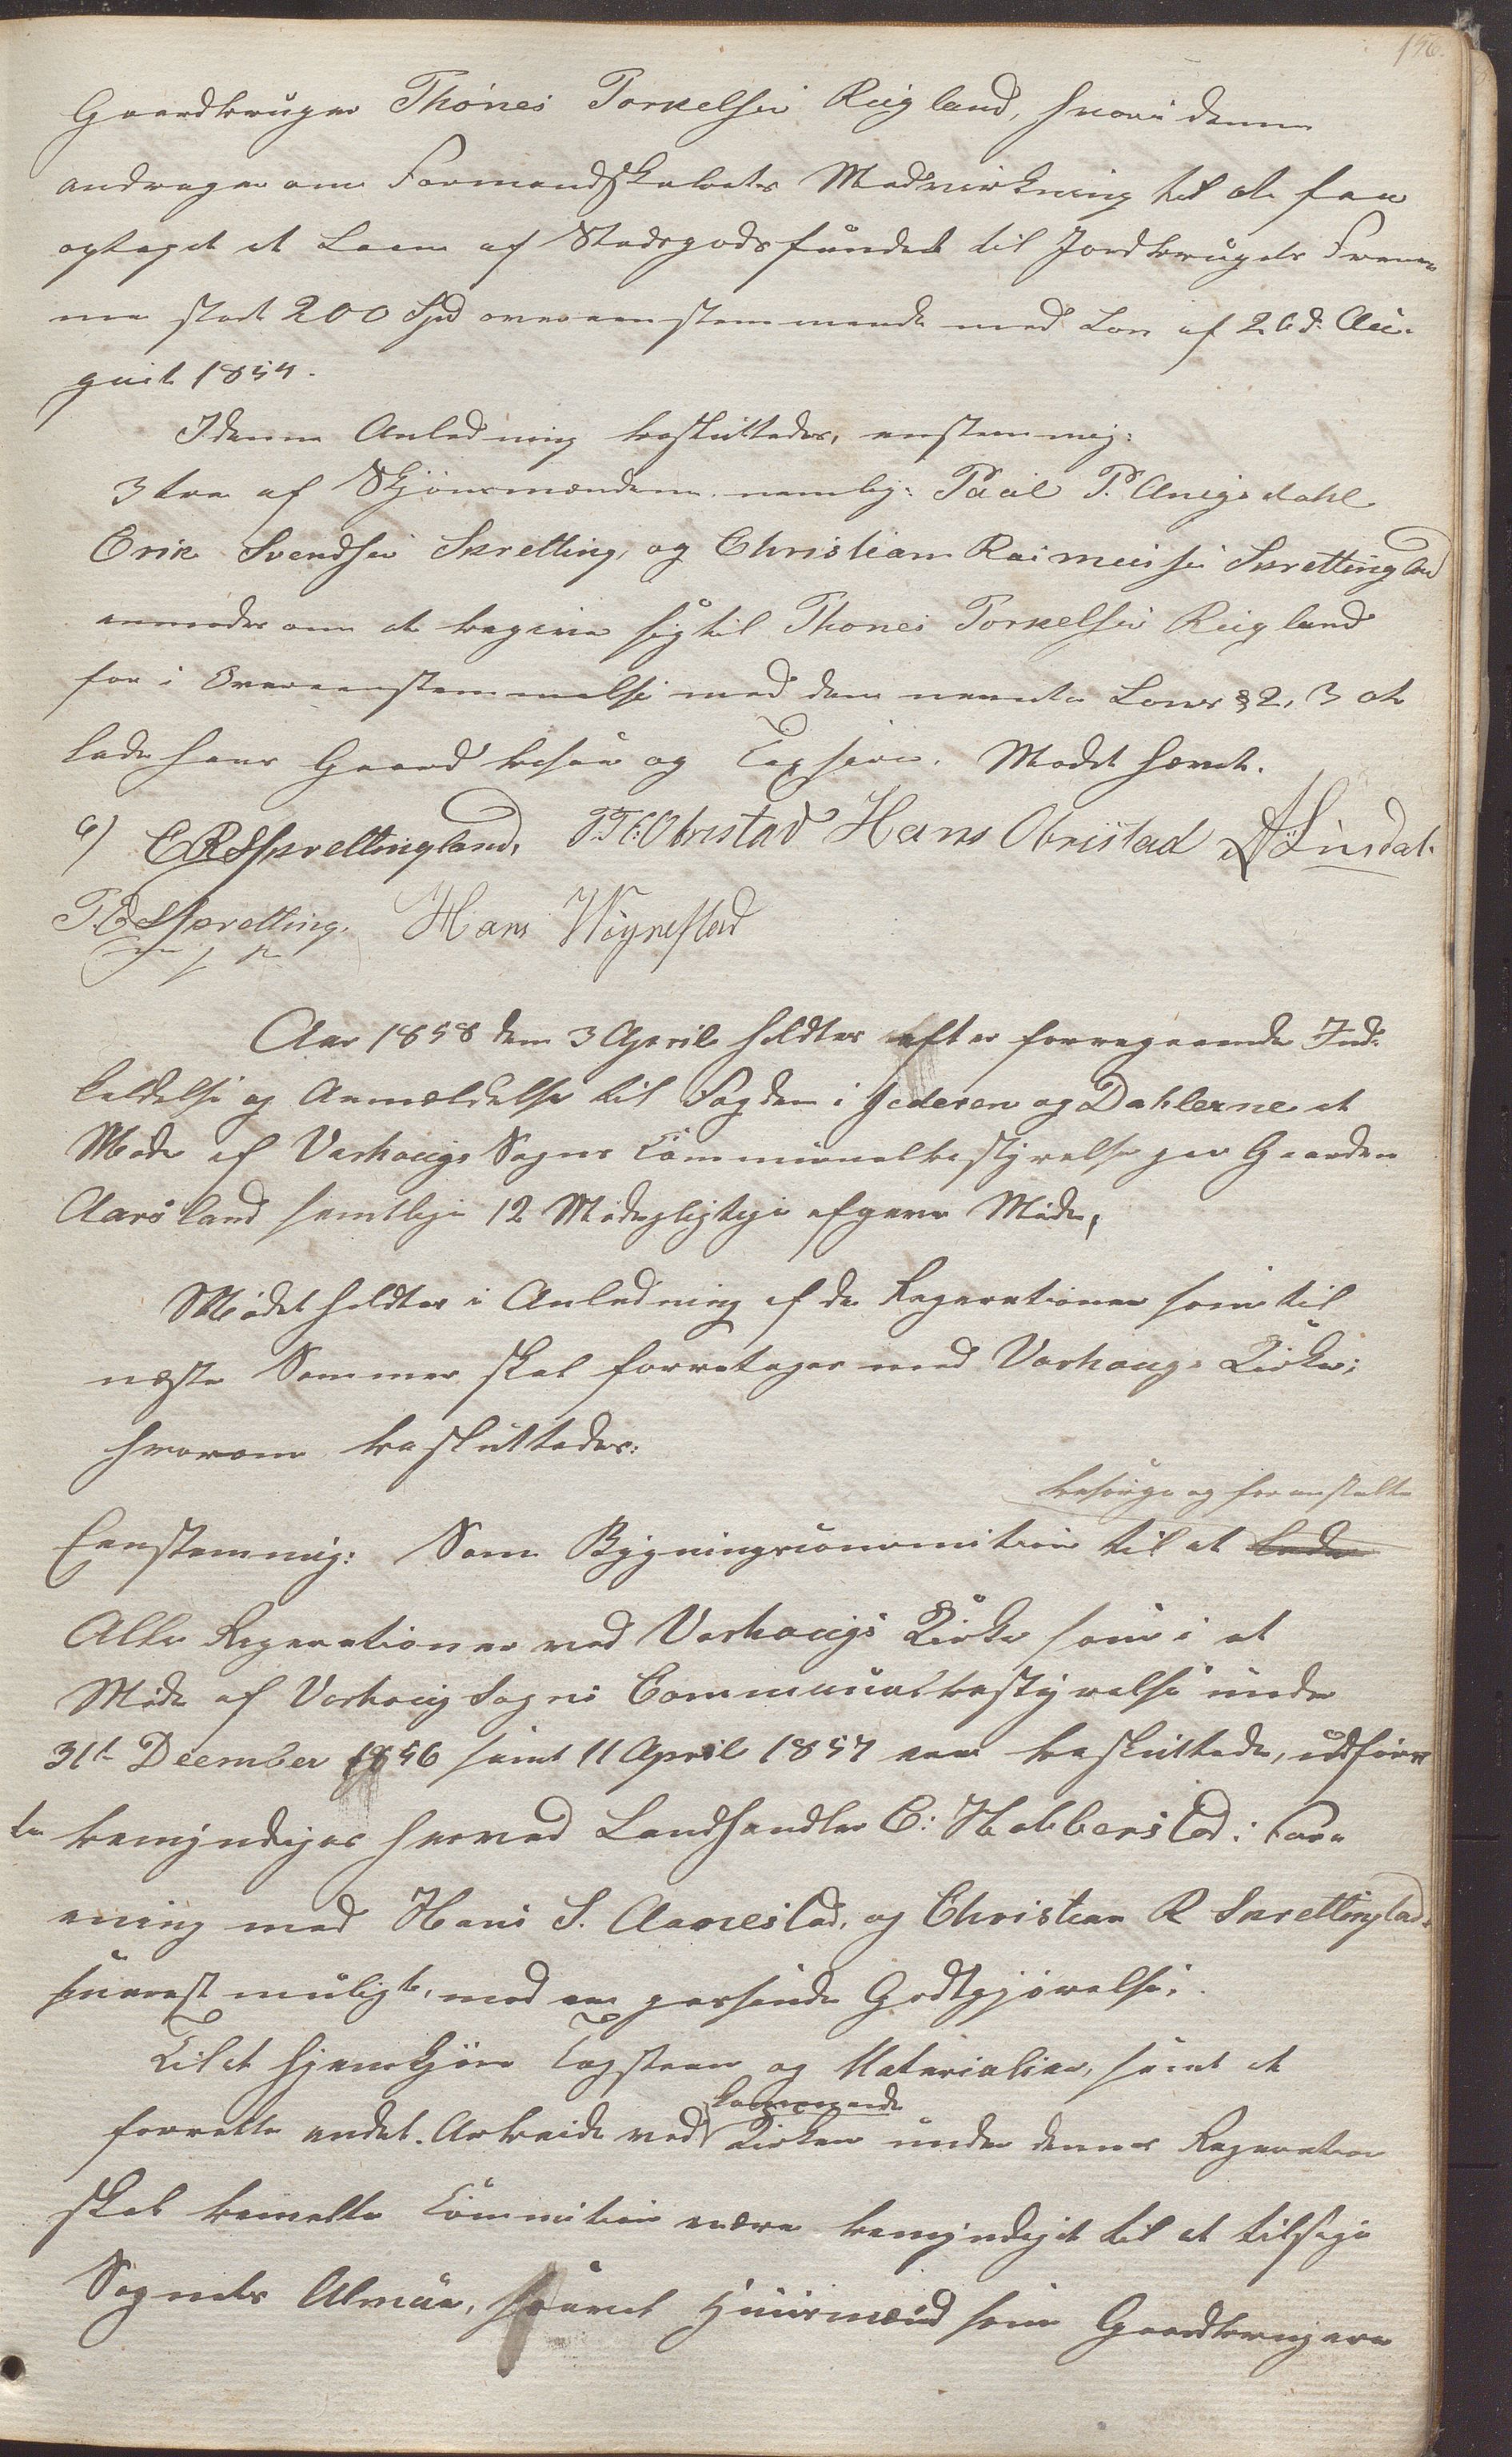 196.
Gaardbruger Thønes Torkelsen Rugland, hvori denne
andrager om Formandskabets Medvirkning til at faa
optaget et Laan af Stadsgodsfundet til Jordbrugets Frem-
me stort 200 Spd overeenstemmende med Lov af 26d. Au-
gust 1854.
I denne Anledning besluttedes, enstemmig:
3tre af Skjønsmændene nemlig: Paal P. Anigsdahl
Erik Svendsen Skretting, og Christian Rasmussen Skrettingland
anmodes om at begive sig til Thønes Torkelsen Rugland
for i Overeenstemmelse med den nævnte Lovs § 2, 3 at
lade hans Gaard besee og Taxere. Mødet hævet.
C R Skrettingland, T. T. Obrestad Hans Obrestad A Lindal.
T. E Skretting. Hans Wignestad
m f P
Aar 1858 den 3 April holdtes efter forregaaende Ind-
kaldelse og Anmældelse til Fogden i Jederen og Dahlerne et
Møde af Varhougs Sogns Communalbestyrelse paa Gaarden
Aarsland samtlige 12 Mødepligtige afgave Møde,
Mødet holdtes i Anledning af de Reparationer som til
næste Sommer skal forretages med Varhougs Kirke;
hvorom besluttedes:
besørge og foranstalte
Eenstemmig: Som Bygningscommitee til at lade
Alle Reparationer ved Varhougs Kirke som i et
Møde af Varhoug Sogns Communalbestyrelse under
31te December 1856 samt 11 April 1857 ere besluttede, udføre
bemyndiges herved Landhandler C: Habberstad i For-
ening med Hans S. Aanestad, og Christian R Skrettingland
snarest muligt, mod en passende Godtgjørelse.
Til at hjemkjøre Tagsteen og Materialier, samt at
forrette andet Arbeide ved Kirken under dennes Reparation
skal bemelte Committee være bemyndiget til at tilsige
Sognets Almue, saavel Huusmænd som Gaardbrugere